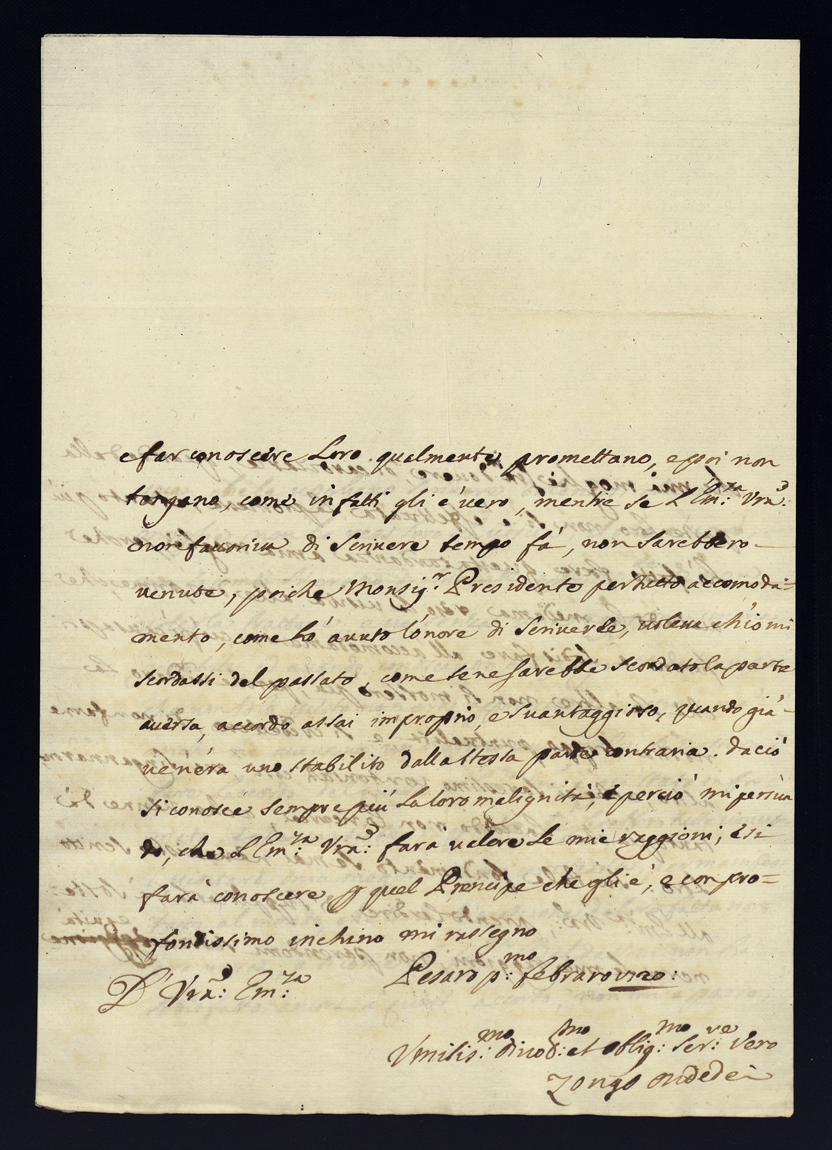 e far conoscere Loro qualmente promettano, e poi non
tengano, come in fatti gli è vero, mentre se L'Em:za Vra:
mi favoriva di scrivere tempo fà, non sarebbero
venute, poiche Monsig:r Presidente per detto accomoda=
mento, come hò auuto l'onore di scriverle, uoleua ch'io mi
scordassi del passato, come se ne sarebbe scordato la parte
auersa, accordo assai improprio, e suantaggioso, quando già
ue n'era uno stabilito dalla stessa parte contraria. Da ciò
si conosce sempre più la loro malignità, e perciò mi persua
do, che L'Em:za Vra: farà ualere le mie raggioni, e si
farà conoscere p quel Prencipe che gli è, e con pro=
fondissimo inchino mi rassegno
D' Vra: Em:za Pesaro p:mo febraro 1720:
Vmilis:mo Diuot:mo et oblig:mo ser:ve vero
Zongo Ondedei